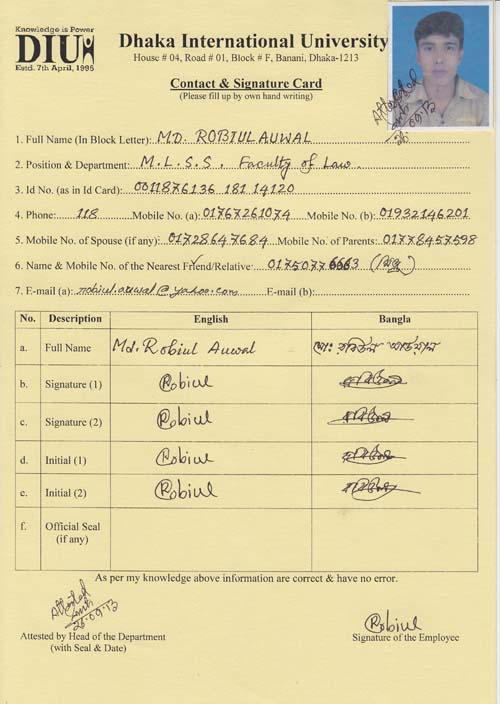 Knowledge is Power
DIU
Estd. 7th April, 1995
Dhaka International University
House # 04, Road # 01, Block # F, Banani, Dhaka-1213
Contact & Signature Card
(Please fill up by own hand writing)
Attested
26.09.13
1. Full Name (In Block Letter): MD. ROBIUL AUWAL
2. Position & Department: M.L.S.S. Faculty of Law.
3. Id No. (as in Id Card): 0011876136 181 14120
4. Phone: 118 Mobile No. (a): 01767261074 Mobile No. (b): 01932146201
5. Mobile No. of Spouse (if any): 01728647684 Mobile No. of Parents: 01778457598
6. Name & Mobile No. of the Nearest Friend/Relative: 0175077 6663
7. E-mail (a): robiul.auwal@yahoo.com E-mail (b):
No. Description English Bangla
a. Full Name Md. Robiul Auwal মোঃ রবিউল আউয়াল
b. Signature (1) Robiul
c. Signature (2) Robiul
d. Initial (1) Robiul
e. Initial (2) Robiul
f. Official Seal
(if any)
As per my knowledge above information are correct & have no error.
Attested
26.09.13
Robiul
Attested by Head of the Department
(with Seal & Date)
Signature of the Employee